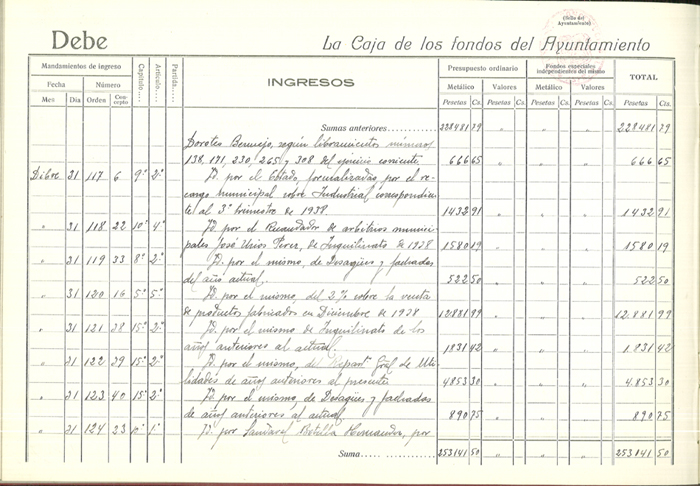 (Sello del Ayuntamiento)
Debe
La Caja de los fondos del Ayuntamiento
Mandamientos de ingreso
Capítulo....
Artículo....
Partida....
INGRESOS
Presupuesto ordinario
Fondos especiales independientes del mismo
TOTAL
Fecha Número Metálico Valores Metálico Valores
Mes Día Orden Concepto Pesetas Cs. Pesetas Cs. Pesetas Cs. Pesetas Cs. Pesetas Cs.
Sumas anteriores 228481 79 " " " 228.481 79
Doroteo Bermejo, según libramientos números
138, 171, 230, 265 y 308 del ejercicio corriente 666 65 " " " 666 65
Dibre 31 117 6 9º 2º Id. por el Estado, formalizadas, por el re-
cargo municipal sobre Industrial, correspondien-
te al 3er trimestre de 1938 1432 91 " " " 1432 91
" 31 118 22 10º 4º Id. por el Recaudador de arbitrios munici-
pales José Urios Perez, de Inquilinato de 1938 1580 19 " " " 1580 19
" 31 119 33 8º 2º Id. por el mismo, de Desagües y fachadas
del año actual. 522 50 " " " 522 50
" 31 120 16 5º 5º Id. por el mismo, del 2% sobre la venta
de productos fabricados en Diciembre de 1938 12881 99 " " " 12.881 99
" 31 121 38 15º 2º Id. por el mismo de Inquilinato de los
años anteriores al actual 1831 42 " " " 1.831 42
" 31 122 39 15º 2º Id. por el mismo, del Repart. Gral de Uti-
lidades de años anteriores al presente 4853 30 " " " 4.853 30
" 31 123 40 15º 2º Id. por el mismo, de Desagües y fachadas
de años anteriores al actual 890 75 " " " 890 75
" 31 124 23 1º Id. por Sandoval Botella Hernandez, por
Suma 253141 50 " " " 253.041 50